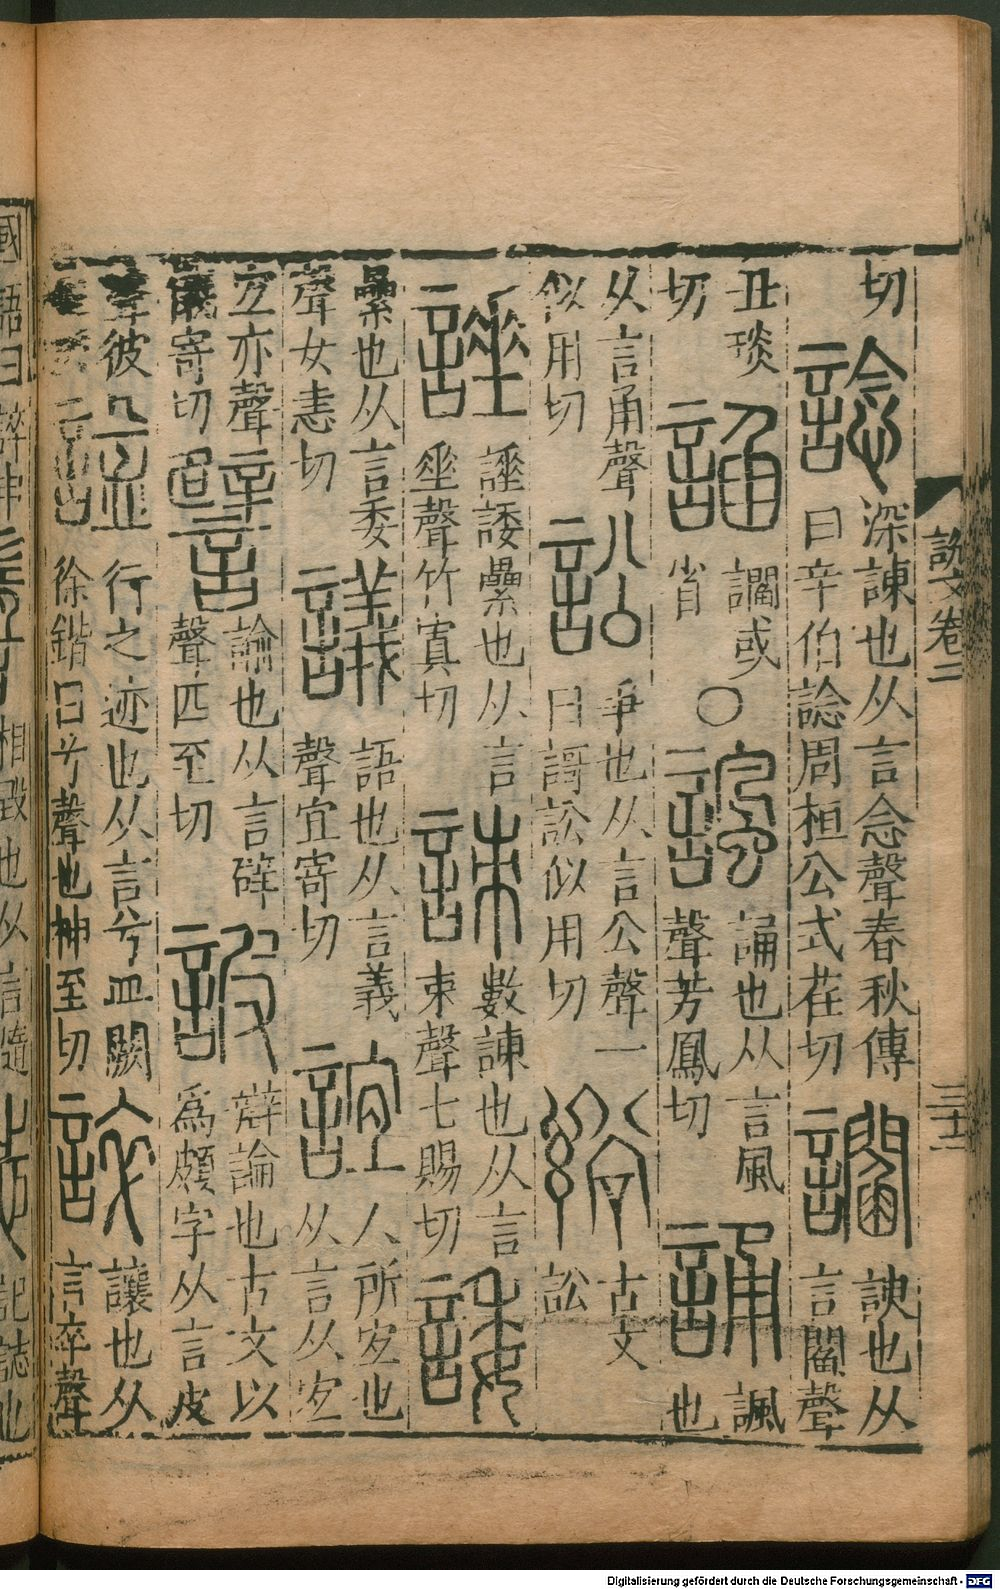 切諗深諫也从言念聲春秋傳
曰辛伯諗周桓公式荏切讇諛也从
言閻聲
丑琰
切䛡讇或
省
○諷誦也从言風
聲芳鳳切誦諷
也
从言甬聲
似用切訟爭也从言公聲一
曰謌訟似用切古文
訟
諈諈諉纍也从言
坐聲竹寘切諫數諫也从言
朿聲七賜切諉
纍也从言委
聲女恚切議語也从言義
聲宜寄切誼人所宜也
从言从宜
宜亦聲
儀寄切譬諭也从言辟
聲匹至切詖辯論也古文以
爲頗字从言皮
聲彼
謚行之迹也从言兮皿闕
徐鍇曰兮聲也神至切誶讓也从
言卒聲
國語曰誶申
相毀也从言隨
記誌也
說文卷二
三十二
Digitalisierung gefördert durch die Deutsche Forschungsgemeinschaft - DFG